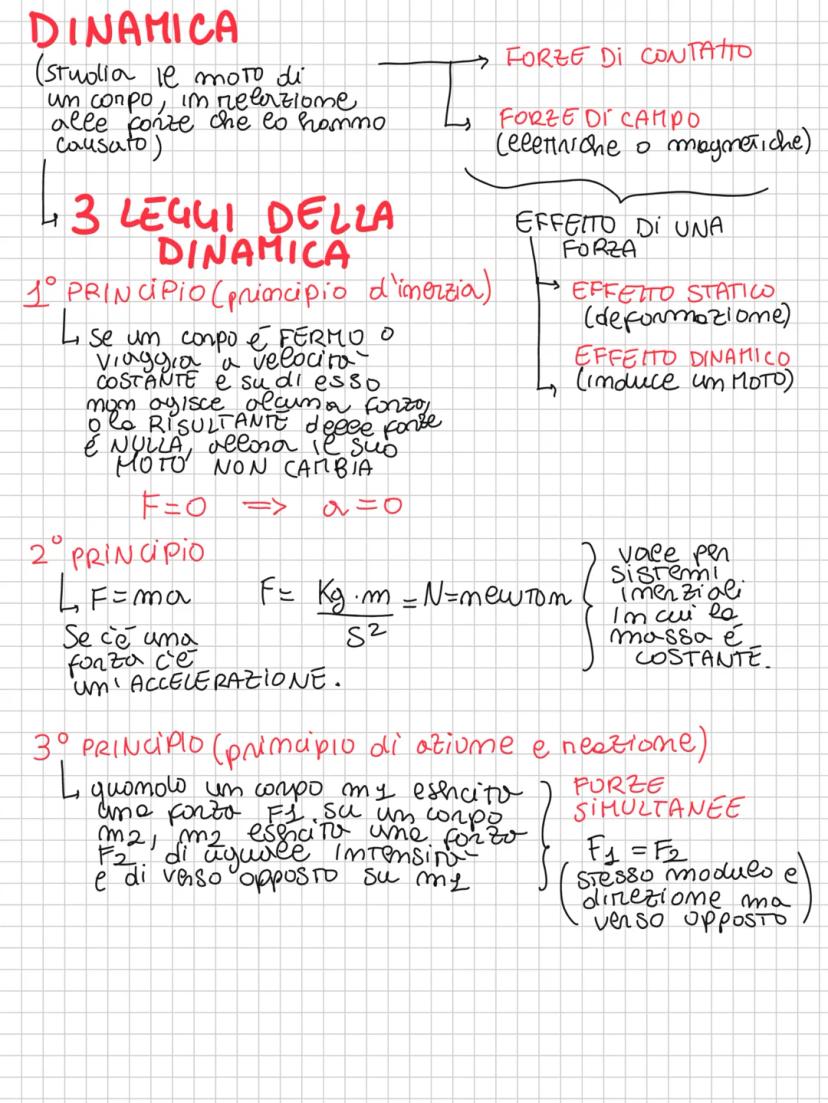 DINAMICA
(studia il moto di
un corpo, in relazione
alle forze che lo hanno
causato)
FORZE Di CONTATTO
FORZE Di CAMPO
(elettriche o magnetiche)
3 LEGGI DELLA
DINAMICA
EFFETTO Di UNA
FORZA
EFFETTO STATICO
(deformazione)
EFFETTO DINAMICO
(induce un MOTO)
1° PRINCIPIO (principio d'inerzia)
Se un corpo é FERMO o
viaggia a velocità
COSTANTE e su di esso
non agisce alcuna forza,
o la RISULTANTE delle forze
é NULLA, allora il suo
MOTO NON CAMBIA
F=0 => a=0
2° PRINCIPIO
F=ma
F= Kg·m/s² =N=newton
Se c'é una
forza c'é
un'ACCELERAZIONE.
vale per
sistemi
inerziali
in cui la
massa é
COSTANTE.
3° PRINCIPIO (principio di azione e reazione)
quando un corpo m1 esercita
una forza F1 su un corpo
m2, m2 esercita una forza
F2 di uguale intensità
e di verso opposto su m1
FORZE
SIMULTANEE
F1 = F2
(stesso modulo e
direzione ma
verso opposto)